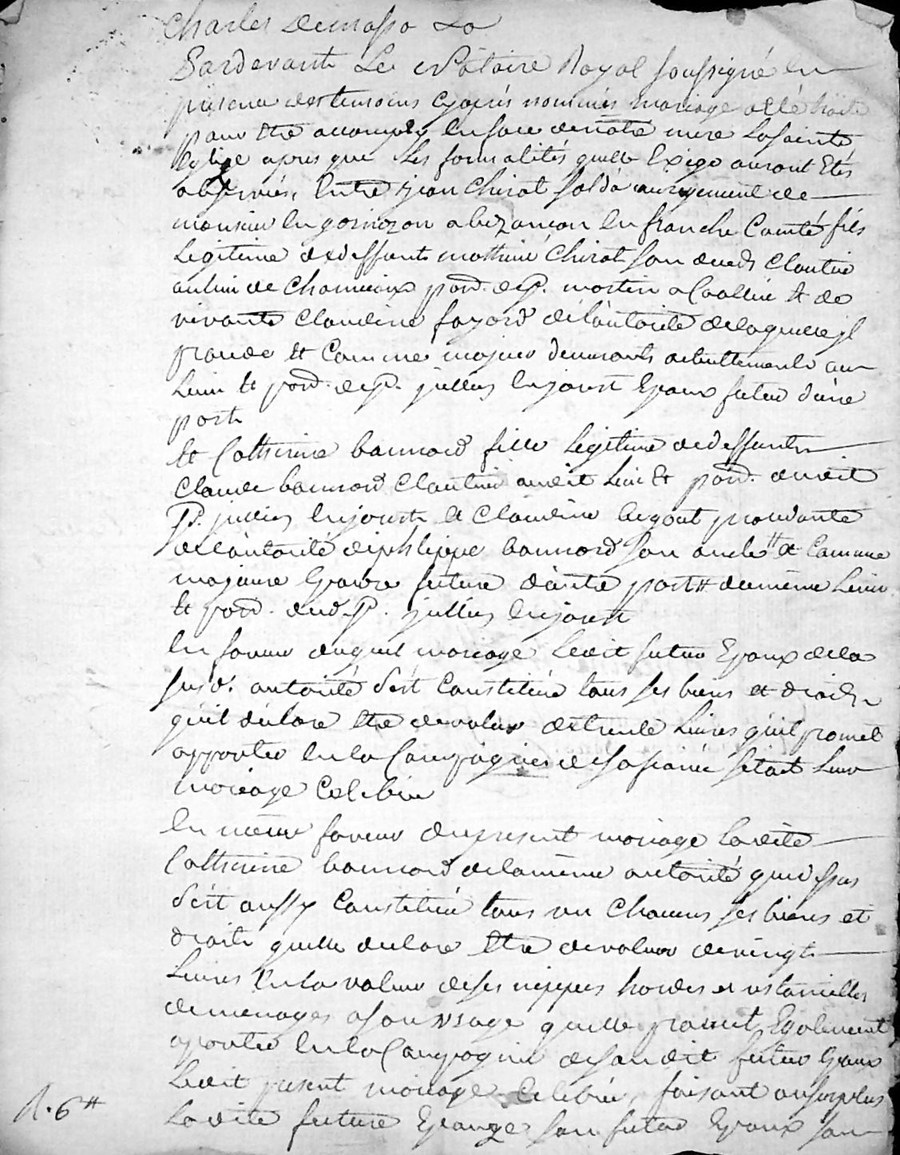 Charles Demasso &a
Pardevant Le Notaire Royal soussigné en
presence des temoins cy après nommés mariage a eté traité
pour être accomply en face de nôtre mere La sainte
Eglise apres que les formalités quelle Exige auront Etés
observées, Entre jean Chirat soldà au regiment de
monsieur en garnizon a bizancon en franche Comté fils
Legitime de deffunt mathieu Chirat son
de Chamieux par. de St. martin a Coallieu & de
vivante Claudine fayard de l'autorité de laquelle jl
procede & Comme majeur demeurants actuellement au
Lieu & par. de St. jullien en jarest Epoux futur d'une
part
& Catherine bannard fille Legitime de deffunt
Claude bannard Cloutier audit Lieu & par. dudit
St. jullien en jarest & Claudine procedante
de l'autorité de philippe bannard son oncle & Comme
majeure Epouse future d'autre part du même Lieu
& par. dud. St. jullien en jarest
En faveur duquel mariage Ledit futur Epoux de la
susd. autorité s'est Constitué tous ses biens et droits
quil declare être de valeur de trente Livres quil promet
apporter en la Compagnie de sa fiancée sitôt Leur
mariage Celebré
En même faveur du present mariage Ladite
Catherine bannard de la même autorité que dessus
s'est aussy Constituée tous un Chacuns ses biens et
droits quelle declare être de valeur de vingt
Livres en la valeur de ses nippes hardes et ustancilles
de menages a son usage quelle promet Egalement
aporter en la Compagnie de sondit futur Epoux
Ledit present mariage Celebré, faisant au surplus
Ladite future Epouze son futur Epoux son
R. 6 tt